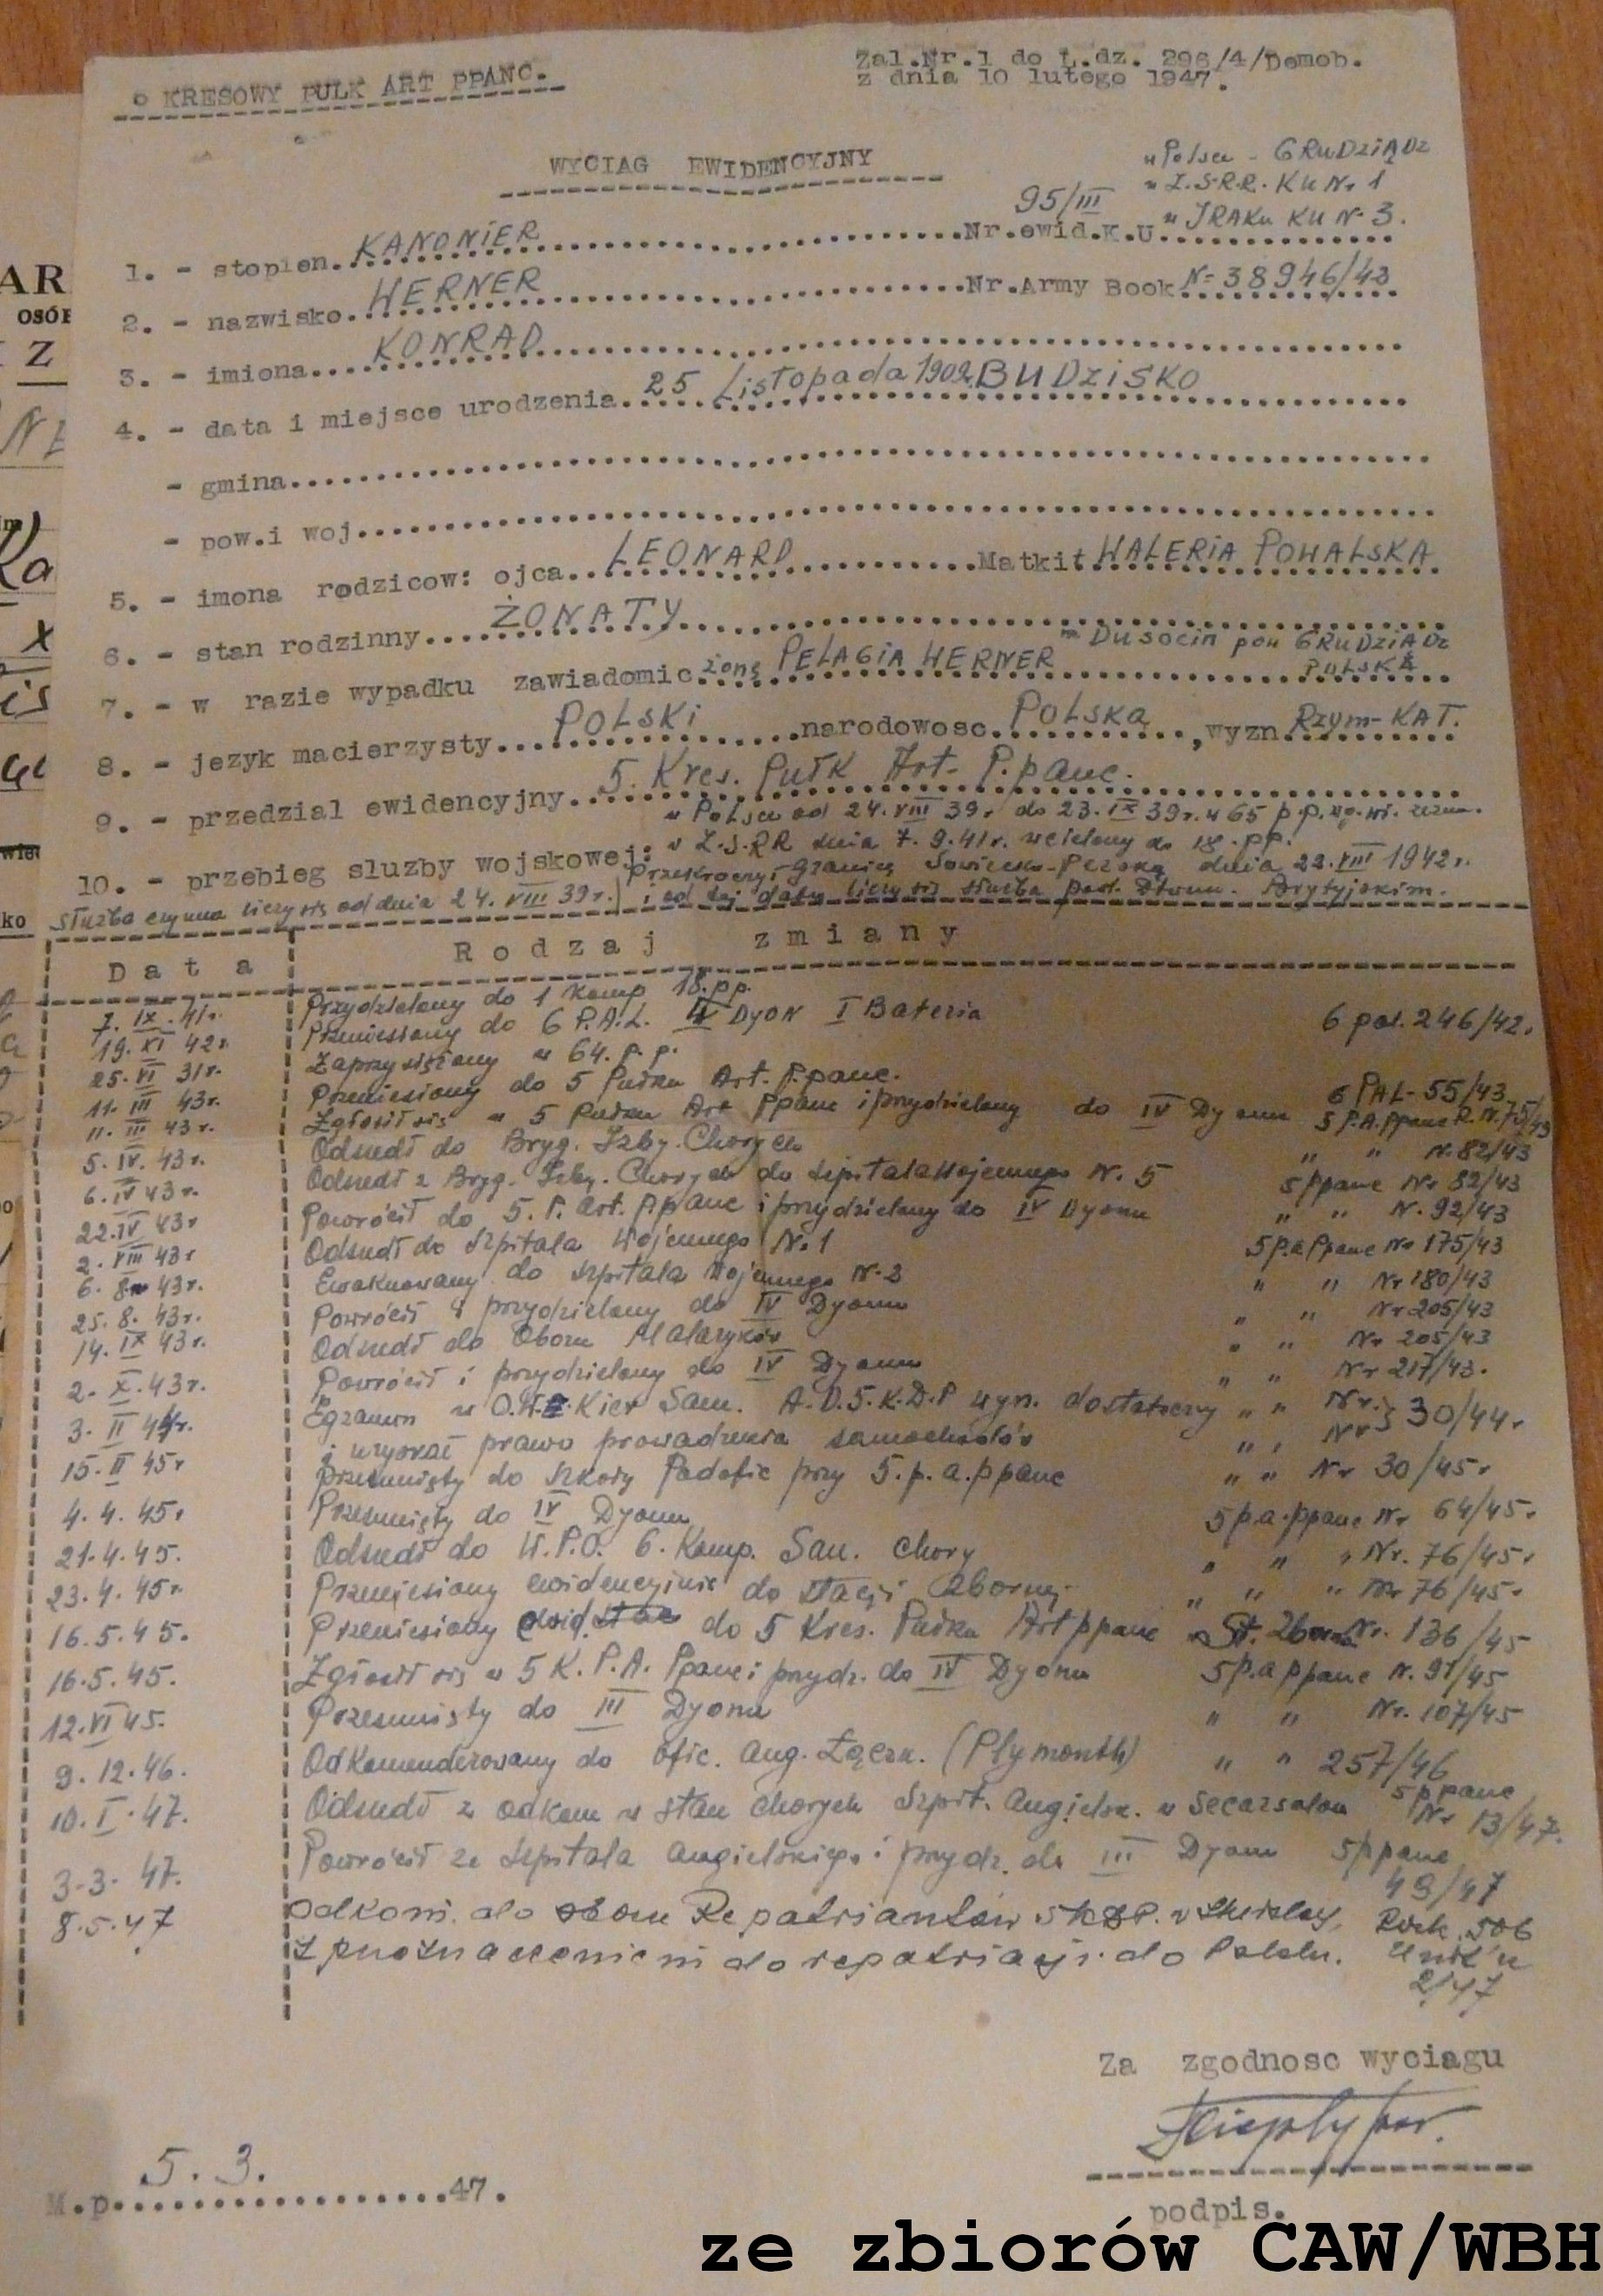 o KRESOWY PULK ART PPANC.
Zal.Nr.1 do L.dz. 296/4/Demob.
z dnia 10 lutego 1947.
WYCIAG EWIDENCYJNY
w Polsce - GRUDZIĄDZ
w Z.S.R.R. KU Nr 1
95/III w IRAKu KU N- 3.
1. - stopien..KANONIER...Nr.ewid.K.U...
2. - nazwisko..HERNER...Nr.Army Book N- 38946/43
3. - imiona...KONRAD...
4. - data i miejsce urodzenia..25 Listopada 1909r. BUDZISKO
- gmina...
- pow.i woj...
5. - imona rodzicow: ojca..LEONARD...Matki WALERIA POWALSKA
6. - stan rodzinny..ŻONATY...
m Dusocin pow GRUDZIĄDZ
POLSKA
7. - w razie wypadku zawiadomic żonę PELAGIA HERNER
8. - jezyk macierzysty...POLSKi...narodowosc.POLSKA.,wyzn.Rzym-KAT.
9. - przedzial ewidencyjny..5. Kres. Pułk Art- P.panc.
w Polsce od 24.VIII 39r do 23.IX 39r. w 65 p.p.
10. - przebieg sluzby wojskowej: w Z.S.RR dnia 7.9.41r. wcielony do 18.pp.
Przekroczył Granicę Sowiecko-Perską dnia 22.VIII 1942r.
Służba czynna liczy się od dnia 24.VIII 39r.) i od tej daty liczy się służba pod. Brytyjskim.
D a t a R o d z a j z m i a n y
7. IX. 41r. Przydzielony do 1 Komp 18.pp.
19. XI 42r. Przeniesiony do 6 P.A.L. Dyon I Bateria 6 pal. 246/42.
25. VI 31r. Zaprzysiężony w 64. p.p.
11. III 43r. Przeniesiony do 5 Pułku Art. P.panc. 6 PAL- 55/43
11. III 43r. Zgłosił się w 5 Pułku Art Ppanc i przydzielony do IV Dyonu 5 P.A.Ppanc R.N.75/43
5. IV. 43r. Odszedł do Bryg. Izby. Chorych " " N. 82/43
6. IV 43r. Odszedł z Bryg. Izby. Chorych do Szpitala Wojennego N. 5 5 Ppanc Nr 82/43
22. IV 43r Powrócił do 5. P. Art. P.panc i przydzielony do IV Dyonu " " N. 92/43
2. VIII 43r Odszedł do Szpitala Wojennego N. 1 5 P.a Ppanc Nr 175/43
6. 8. 43r. Ewakuowany do szpitala Wojennego N. 3 " " Nr 180/43
25. 8. 43r. Powrócił i przydzielony do IV Dyonu " " Nr 205/43
14. IX 43r. Odszedł do Obozu Malaryków " " Nr 205/43
2. X. 43r. Powrócił i przydzielony do IV Dyonu " " Nr 217/43.
3. II 44r. Egzamin w Kier Sam. wyn. dostateczny " " Nr. } 30/44r
i uzyskał prawo prowadzenia samochodów " " Nr
15. II 45r Przesunięty do szkoły Podofic przy 5.p.a.ppanc " " Nr 30/45r
4. 4. 45r Przesunięty do IV Dyonu 5 p.a.ppanc Nr 64/45r
21. 4. 45. Odszedł do W.P.O. 6. Komp. San. chory " " Nr. 76/45r
23. 4. 45r. Przeniesiony ewidencyjnie do Stacji Zbornej " " Nr 76/45r
16. 5. 45. Przeniesiony ewid. do 5 Kres. Pułku Art ppanc St. Zborna Nr. 136/45
16. 5. 45. Zgłosił się w 5 K. P.A. Ppanc i przydz. do IV Dyonu 5 p.a ppanc N. 91/45
12. VI 45. Przesunięty do III Dyonu " " Nr. 107/45
9. 12. 46. Odkomenderowany do ofic. ang. Łączn. (Plymouth) " " 257/46
10. I. 47. Odszedł z odkom w stan chorych Szpit. Angielsk. w 5 ppanc
Nr 13/47.
3. 3. 47. Powrócił ze Szpitala Angielskiego i przydz. do III Dyonu 5 ppanc
49/47
8. 5. 47 Odkom. do obozu Repatriantów Rozk. 506
z przeznaczeniem do repatriacji do Polski. Unit'u
2/47
Za zgodnosc wyciagu
5. 3.
M.p...47.
podpis.
ze zbiorów CAW/WBH